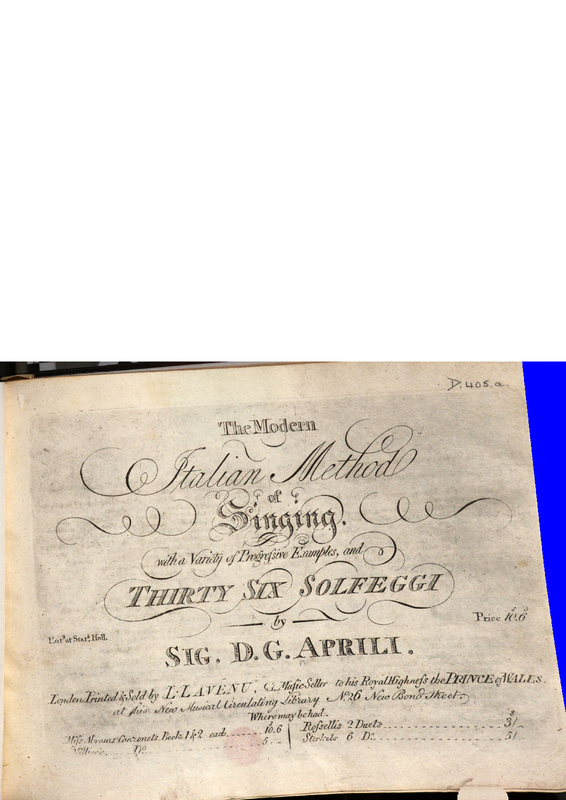 D.405.a
The Modern
Italian Method
of
Singing.
with a Variety of Progreſsive Examples, and
THIRTY SIX SOLFEGGI
by
Price 10.6
Ent.d at Stat.s Hall.
SIG. D.G. APRILI.
London Printed & Sold by L. LAVENU, Music Seller to his Royal Highneſs the PRINCE of WALES.
at his New Musical Circulating Library No. 26 New Bond Street.
Where may be had.
Miſs Abrams Canzonets Book 1 & 2 each 10.6
Do. 5
Roſsellis 2 Duets 3/-
Sterkels 6 Do. 5/